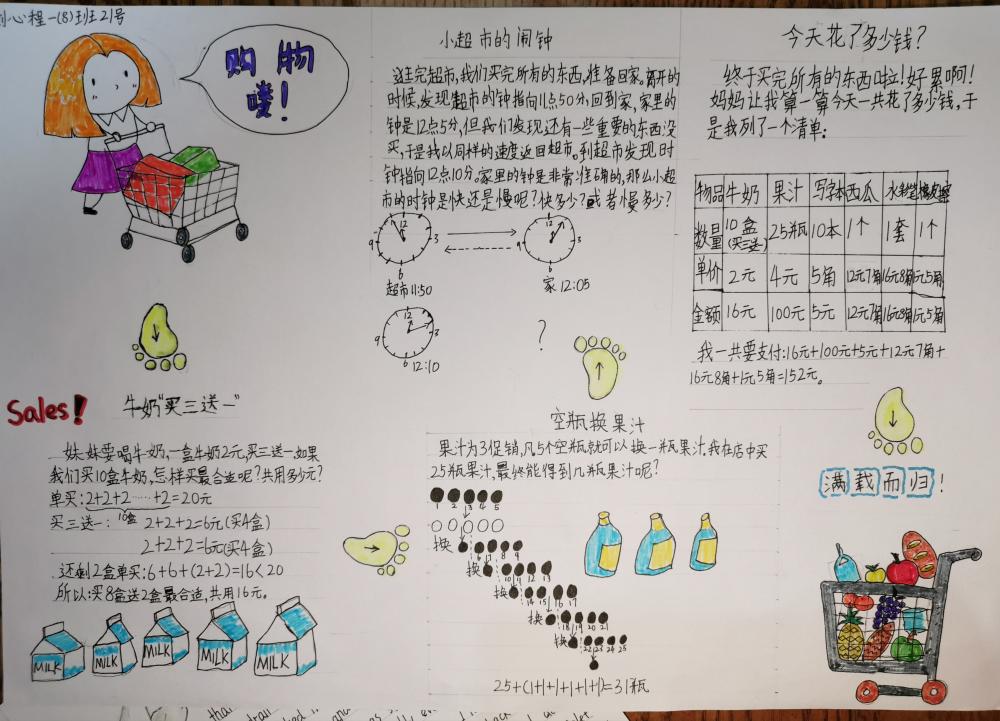 心程一(8)班21号
购物
喽!
小超市的闹钟
逛完超市,我们买完所有的东西,准备回家。离开的
时候,发现超市的钟指向11点50分,回到家,家里的
钟是12点5分,但我们发现还有一些重要的东西没
买,于是我以同样的速度返回超市。到超市发现时
钟指向12点10分。家里的钟是非常准确的,那么小超
市的时钟是快还是慢呢?快多少?或者慢多少?
12
9 3
6
超市11:50
12
9 3
6
家12:05
12
9 3
6
12:10
?
今天花了多少钱?
终于买完所有的东西啦!好累啊!
妈妈让我算一算今天一共花了多少钱,于
是我列了一个清单:
物品 牛奶 果汁 写字本 西瓜 水彩笔 橡皮擦
数量 10盒(买三送一) 25瓶 10本 1个 1套 1个
单价 2元 4元 5角 12元7角 16元8角 1元5角
金额 16元 100元 5元 12元7角 16元8角 1元5角
我一共要支付:16元+100元+5元+12元7角+
16元8角+1元5角=152元。
满载而归!
Sales!
牛奶“买三送一”
妹妹要喝牛奶,一盒牛奶2元,买三送一,如果
我们买10盒牛奶,怎样买最合适呢?共用多少元?
单买:2+2+2……+2=20元
10盒
买三送一: 2+2+2=6元(买4盒)
2+2+2=6元(买4盒)
还剩2盒单买:6+6+(2+2)=16<20
所以:买8盒送2盒最合适,共用16元。
MILK
MILK
MILK
MILK
MILK
空瓶换果汁
果汁为了促销,凡5个空瓶就可以换一瓶果汁。我在店中买
25瓶果汁,最终能得到几瓶果汁呢?
1 2 3 4 5
换
6 7 8 9
换
10 11 12 13
换
14 15 16 17
换
18 19 20 21
换
22 23 24 25
25+(1+1+1+1+1+1)=31瓶